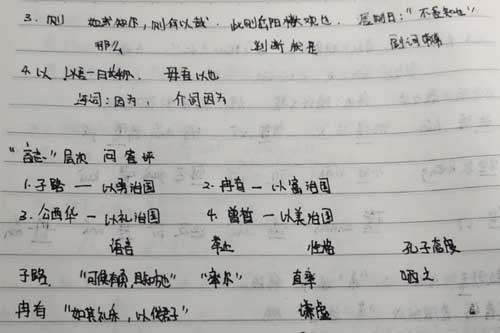 3. 则 如或知尔，则何以哉. 此则岳阳楼 也.
那么 判断 就是 副词
4. 以 以吾一日长 毋吾以也
连词：因为， 介词因为
"言志" 层次 问 答 评
1. 子路 — 以勇治国 2. 冉有 — 以富治国
3. 公西华 — 以礼治国 4. 曾皙 — 以美治国
语言 举止 性格 孔子态度
子路. "可使有勇，且知方也" "率尔" 直率 哂之
冉有 "如其礼乐，以俟君子" 谦虚